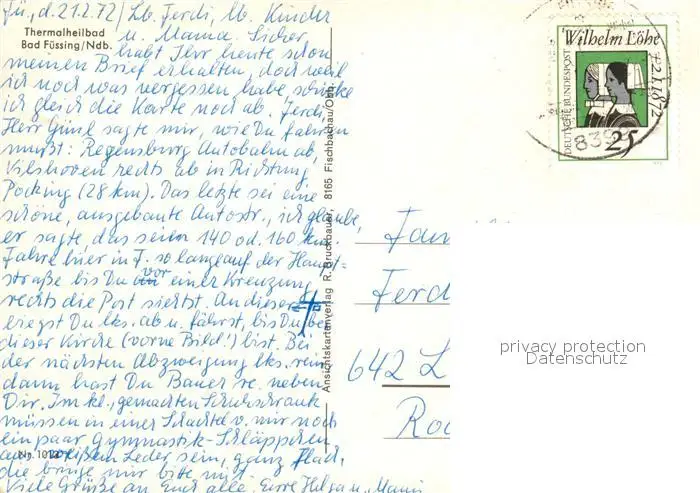 Fü., d. 21.2.72/ Lb. Ferdi, lb. Kinder
Thermalheilbad
Bad Füssing/Ndb.
u. Mama. Sicher
habt Ihr heute schon
meinen Brief erhalten, doch weil
ich noch was vergessen habe schicke
ich gleich die Karte noch ab. Ferdi,
Herr Günl sagte mir, wie Du fahren
mußt: Regensburg Autobahn ab,
Vilshoven rechts ab in Richtung
Pocking (28 km). Das letzte sei eine
schöne, ausgebaute Autostr., ich glaube,
er sagte, das seien 140 od. 160 km.
Fahre hier in F. so lange auf der Haupt=
straße bis Du vor einer Kreuzung
rechts die Post siehst. An dieser
biegst Du lks. ab u. fährst, bis Du bei
dieser Kirche (vorne Bild!) bist. Bei
der nächsten Abzweigung lks. rein
dann hast Du Bauer re. neben
Dir. Im kl., gemachten Schuhschrank
müssen in einer Schachtel v. mir noch
ein paar Gymnastik-Schläppchen
Nr. 10
aus weißem Leder sein, ganz flach,
die bringe mir bitte mit.
Viele Grüße an Euch alle. Eure Helga u. Mami
Ansichtskartenverlag R. Bruckbauer, 8165 Fischbachau/Obb.
Wilhelm Löhe
DEUTSCHE BUNDESPOST
25
839
Fam
Ferd
642 L
Ro
privacy protection
Datenschutz